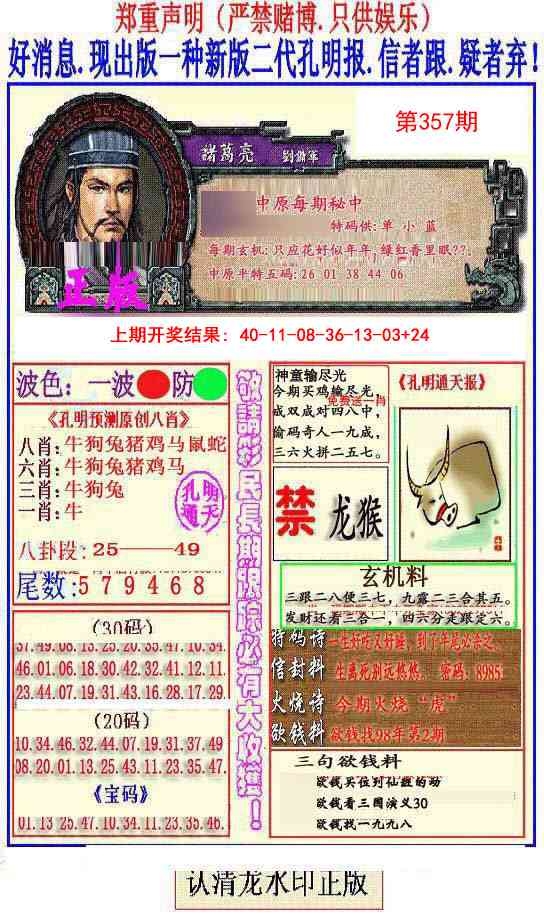 郑重声明（严禁赌博.只供娱乐）
好消息.现出版一种新版二代孔明报.信者跟.疑者弃!
第357期
諸葛亮 劉備軍
中原每期秘中
特码供:单 小 蓝
每期玄机:只应花好似年年 绿红香里眠??:
中原半特五码:26 01 38 44 06
正版
上期开奖结果: 40-11-08-36-13-03+24
波色: 一波 防
《孔明预测原创八肖》
八肖:牛狗兔猪鸡马鼠蛇
六肖:牛狗兔猪鸡马
三肖:牛狗兔
一肖:牛
孔明
通天
八卦段:25——49
尾数:579468
(30码)
37.49.08.13.25.20.35.47.10.34
46.01.06.18.30.42.32.41.12.11
23.44.07.19.31.43.16.28.17.29.
(20码)
10.34.46.32.44.07.19.31.37.49
08.20.01.13.25.43.11.23.35.47.
《宝码》
01.13 25.47.10.34.11.23.35.46.
敬請彩民長期跟踪必有大收獲！
神童输尽光
今期买鸡输尽光,
免费送一肖
成双成对四八中,
偷码奇人一九成,
三六火拼二五七。
《孔明通天报》
禁 龙猴
玄机料
三跟二八便三七，九露二三合其五。
发财还看三合一，四六分足跟定六。
特码诗 一生好吃又好睡，到了年尾必杀之。
信封料 生离死别远悠悠。 密码:8985!
火烧诗 今期火烧“虎”
欲钱料 欲钱找98年第2期
三句欲钱料
欲钱买位列仙班的动
欲钱看三国演义30
欲钱找一九九八
认清龙水印正版